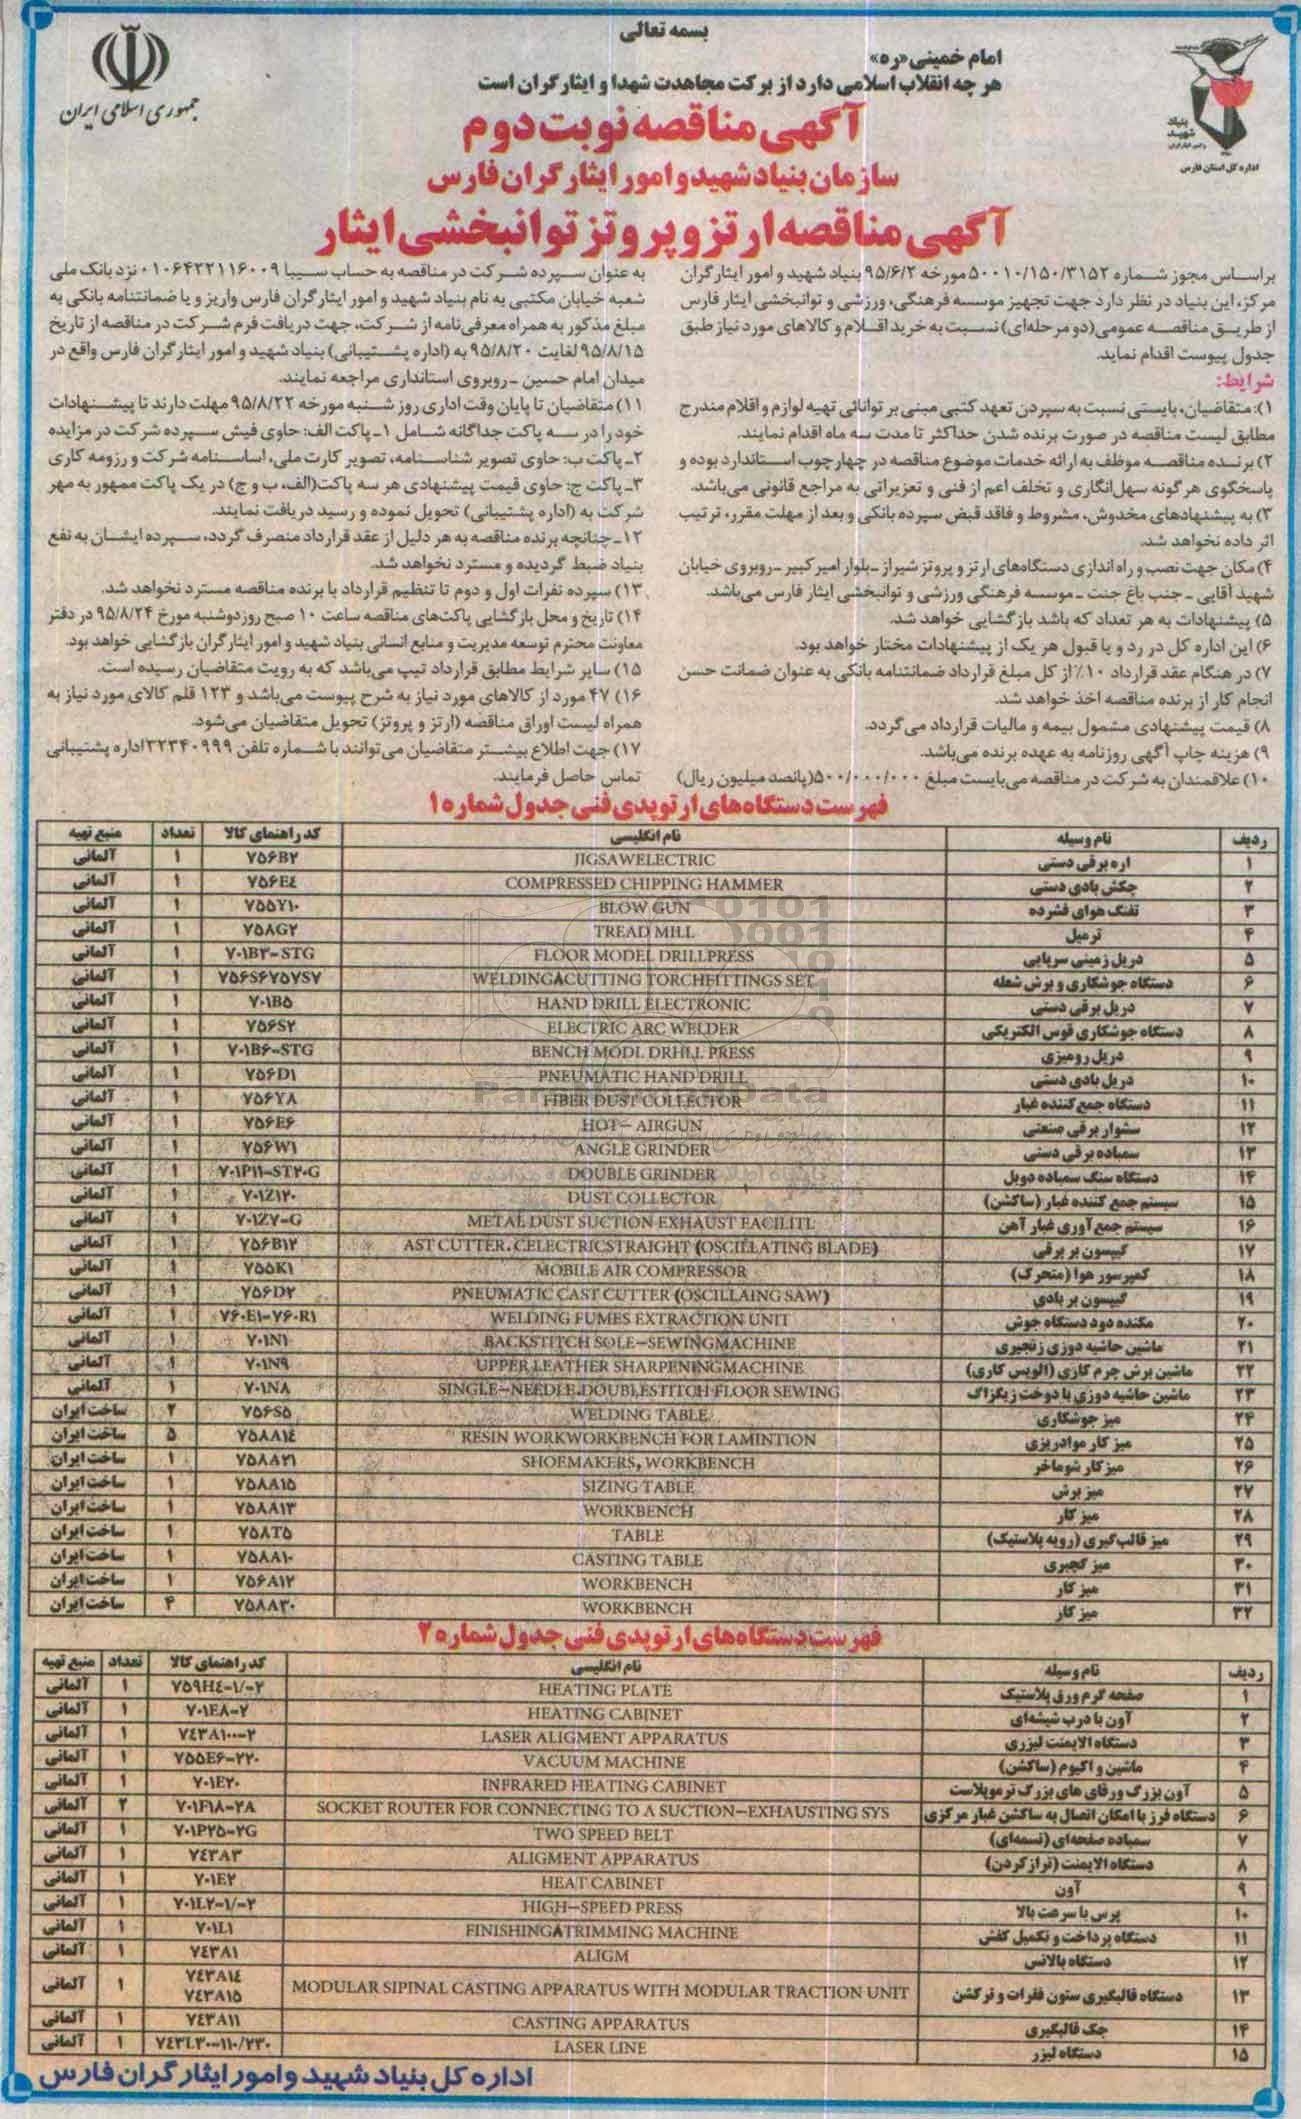 بسمه تعالی
امام خمینی«ره»
هر چه انقلاب اسلامی دارد از برکت مجاهدت شهدا و ایثارگران است
جمهوری اسلامی ایران
بنیاد
شهید
اداره کل استان فارس
آگهی مناقصه نوبت دوم
سازمان بنیاد شهید و امور ایثارگران فارس
آگهی مناقصه ارتز و پروتز توانبخشی ایثار
براساس مجوز شماره ۵۰۰۱۰/۱۵۰/۳۱۵۲ مورخه ۹۵/۶/۲ بنیاد شهید و امور ایثارگران
مرکز، این بنیاد در نظر دارد جهت تجهیز موسسه فرهنگی، ورزشی و توانبخشی ایثار فارس
از طریق مناقصه عمومی(دو مرحله‌ای) نسبت به خرید اقلام و کالاهای مورد نیاز طبق
جدول پیوست اقدام نماید.
شرایط:
۱): متقاضیان، بایستی نسبت به سپردن تعهد کتبی مبنی بر توانائی تهیه لوازم و اقلام مندرج
مطابق لیست مناقصه در صورت برنده شدن حداکثر تا مدت سه ماه اقدام نمایند.
۲) برنده مناقصه موظف به ارائه خدمات موضوع مناقصه در چهارچوب استاندارد بوده و
پاسخگوی هرگونه سهل‌انگاری و تخلف اعم از فنی و تعزیراتی به مراجع قانونی می‌باشد.
۳) به پیشنهادهای مخدوش، مشروط و فاقد قبض سپرده بانکی و بعد از مهلت مقرر، ترتیب
اثر داده نخواهد شد.
۴) مکان جهت نصب و راه اندازی دستگاه‌های ارتز و پروتز شیراز ـ بلوار امیرکبیر ـ روبروی خیابان
شهید آقایی ـ جنب باغ جنت ـ موسسه فرهنگی ورزشی و توانبخشی ایثار فارس می‌باشد.
۵) پیشنهادات به هر تعداد که باشد بازگشایی خواهد شد.
۶) این اداره کل در رد و یا قبول هر یک از پیشنهادات مختار خواهد بود.
۷) در هنگام عقد قرارداد ۱۰٪ از کل مبلغ قرارداد ضمانتنامه بانکی به عنوان ضمانت حسن
انجام کار از برنده مناقصه اخذ خواهد شد.
۸) قیمت پیشنهادی مشمول بیمه و مالیات قرارداد می‌گردد.
۹) هزینه چاپ آگهی روزنامه به عهده برنده می‌باشد.
۱۰) علاقمندان به شرکت در مناقصه می‌بایست مبلغ ۵۰۰/۰۰۰/۰۰۰(پانصد میلیون ریال)
به عنوان سپرده شرکت در مناقصه به حساب سیبا ۰۱۰۶۴۲۲۱۱۶۰۰۹ نزد بانک ملی
شعبه خیابان مکتبی به نام بنیاد شهید و امور ایثارگران فارس واریز و یا ضمانتنامه بانکی به
مبلغ مذکور به همراه معرفی‌نامه از شرکت، جهت دریافت فرم شرکت در مناقصه از تاریخ
۹۵/۸/۱۵ لغایت ۹۵/۸/۲۰ به (اداره پشتیبانی) بنیاد شهید و امور ایثارگران فارس واقع در
میدان امام حسین ـ روبروی استانداری مراجعه نمایند.
۱۱) متقاضیان تا پایان وقت اداری روز شنبه مورخه ۹۵/۸/۲۲ مهلت دارند تا پیشنهادات
خود را در سه پاکت جداگانه شامل ۱ـ پاکت الف: حاوی فیش سپرده شرکت در مزایده
۲ـ پاکت ب: حاوی تصویر شناسنامه، تصویر کارت ملی، اساسنامه شرکت و رزومه کاری
۳ـ پاکت ج: حاوی قیمت پیشنهادی هر سه پاکت(الف، ب و ج) در یک پاکت ممهور به مهر
شرکت به (اداره پشتیبانی) تحویل نموده و رسید دریافت نمایند.
۱۲ـ چنانچه برنده مناقصه به هر دلیل از عقد قرارداد منصرف گردد، سپرده ایشان به نفع
بنیاد ضبط گردیده و مسترد نخواهد شد.
۱۳) سپرده نفرات اول و دوم تا تنظیم قرارداد با برنده مناقصه مسترد نخواهد شد.
۱۴) تاریخ و محل بازگشایی پاکت‌های مناقصه ساعت ۱۰ صبح روز دوشنبه مورخ ۹۵/۸/۲۴ در دفتر
معاونت محترم توسعه مدیریت و منابع انسانی بنیاد شهید و امور ایثارگران بازگشایی خواهد بود.
۱۵) سایر شرایط مطابق قرارداد تیپ می‌باشد که به رویت متقاضیان رسیده است.
۱۶) ۴۷ مورد از کالاهای مورد نیاز به شرح پیوست می‌باشد و ۱۲۳ قلم کالای مورد نیاز به
همراه لیست اوراق مناقصه (ارتز و پروتز) تحویل متقاضیان می‌شود.
۱۷) جهت اطلاع بیشتر متقاضیان می‌توانند با شماره تلفن ۳۲۳۴۰۹۹۹ اداره پشتیبانی
تماس حاصل فرمایند.
فهرست دستگاه‌های ارتوپدی فنی جدول شماره ۱
ردیف نام وسیله نام انگلیسی کد راهنمای کالا تعداد منبع تهیه
۱ اره برقی دستی JIGSAWELECTRIC ۷۵۶B۲ ۱ آلمانی
۲ چکش بادی دستی COMPRESSED CHIPPING HAMMER ۷۵۶E٤ ۱ آلمانی
۳ تفنگ هوای فشرده BLOW GUN ۷۵۵Y۱۰ ۱ آلمانی
۴ ترمیل TREAD MILL ۷۵۸G۲ ۱ آلمانی
۵ دریل زمینی سرپایی FLOOR MODEL DRILLPRESS ۷۰۱B۳-STG ۱ آلمانی
۶ دستگاه جوشکاری و برش شعله WELDING&CUTTING TORCHFITTINGS SET ۷۵۶S۶۷۵۷S۷ ۱ آلمانی
۷ دریل برقی دستی HAND DRILL ELECTRONIC ۷۰۱B۵ ۱ آلمانی
۸ دستگاه جوشکاری قوس الکتریکی ELECTRIC ARC WELDER ۷۵۶S۲ ۱ آلمانی
۹ دریل رومیزی BENCH MODL DRHLL PRESS ۷۰۱B۶-STG ۱ آلمانی
۱۰ دریل بادی دستی PNEUMATIC HAND DRILL ۷۵۶D۱ ۱ آلمانی
۱۱ دستگاه جمع کننده غبار FIBER DUST COLLECTOR ۷۵۶Y۸ ۱ آلمانی
۱۲ سشوار برقی صنعتی HOT- AIRGUN ۷۵۶E۶ ۱ آلمانی
۱۳ سمباده برقی دستی ANGLE GRINDER ۷۵۶W۱ ۱ آلمانی
۱۴ دستگاه سنگ سمباده دوبل DOUBLE GRINDER ۷۰۱P۱۱-ST۲۰G ۱ آلمانی
۱۵ سیستم جمع کننده غبار (ساکشن) DUST COLLECTOR ۷۰۱Z۱۲۰ ۱ آلمانی
۱۶ سیستم جمع آوری غبار آهن METAL DUST SUCTION EXHAUST FACILITL ۷۰۱Z۷-G ۱ آلمانی
۱۷ گیپسون بر برقی AST CUTTER.CELECTRICSTRAIGHT (OSCILLATING BLADE) ۷۵۶B۱۲ ۱ آلمانی
۱۸ کمپرسور هوا (متحرک) MOBILE AIR COMPRESSOR ۷۵۵K۱ ۱ آلمانی
۱۹ گیپسون بر بادی PNEUMATIC CAST CUTTER (OSCILLAING SAW) ۷۵۶D۲ ۱ آلمانی
۲۰ مکنده دود دستگاه جوش WELDING FUMES EXTRACTION UNIT ۷۶۰E۱-۷۶۰R۱ ۱ آلمانی
۲۱ ماشین حاشیه دوزی زنجیری BACKSTITCH SOLE-SEWINGMACHINE ۷۰۱N۱۰ ۱ آلمانی
۲۲ ماشین برش چرم کازی (الویس کاری) UPPER LEATHER SHARPENINGMACHINE ۷۰۱N۹ ۱ آلمانی
۲۳ ماشین حاشیه دوزی با دوخت زیگزاگ SINGLE-NEEDLE.DOUBLESTITCH FLOOR SEWING ۷۰۱N۸ ۱ آلمانی
۲۴ میز جوشکاری WELDING TABLE ۷۵۶S۵ ۲ ساخت ایران
۲۵ میز کار موادریزی RESIN WORKWORKBENCH FOR LAMINTION ۷۵۸A۱٤ ۵ ساخت ایران
۲۶ میز کار شوماخر SHOEMAKERS, WORKBENCH ۷۵۸A۲۱ ۱ ساخت ایران
۲۷ میز برش SIZING TABLE ۷۵۸A۱۵ ۱ ساخت ایران
۲۸ میز کار WORKBENCH ۷۵۸A۱۳ ۱ ساخت ایران
۲۹ میز قالب‌گیری (رویه پلاستیک) TABLE ۷۵۸T۵ ۱ ساخت ایران
۳۰ میز گچبری CASTING TABLE ۷۵۸A۱۰ ۱ ساخت ایران
۳۱ میز کار WORKBENCH ۷۵۶A۱۲ ۱ ساخت ایران
۳۲ میز کار WORKBENCH ۷۵۸A۳۰ ۴ ساخت ایران
فهرست دستگاه‌های ارتوپدی فنی جدول شماره ۲
ردیف نام وسیله نام انگلیسی کد راهنمای کالا تعداد منبع تهیه
۱ صفحه گرم ورق پلاستیک HEATING PLATE ۷۵۹H٤-۱/-۲ ۱ آلمانی
۲ آون با درب شیشه‌ای HEATING CABINET ۷۰۱E۸-۲ ۱ آلمانی
۳ دستگاه الایمنت لیزری LASER ALIGMENT APPARATUS ۷٤۳A۱۰۰-۲ ۱ آلمانی
۴ ماشین واکیوم (ساکشن) VACUUM MACHINE ۷۵۵E۶-۲۲۰ ۱ آلمانی
۵ آون بزرگ ورقای های بزرگ ترموپلاست INFRARED HEATING CABINET ۷۰۱E۲۰ ۱ آلمانی
۶ دستگاه فرز با امکان اتصال به ساکشن غبار مرکزی SOCKET ROUTER FOR CONNECTING TO A SUCTION-EXHAUSTING SYS ۷۰۱F۱۸-۲A ۲ آلمانی
۷ سمباده صفحه‌ای (تسمه‌ای) TWO SPEED BELT ۷۰۱P۲۵-۲G ۱ آلمانی
۸ دستگاه الایمنت (تراز کردن) ALIGMENT APPARATUS ۷٤۳A۳ ۱ آلمانی
۹ آون HEAT CABINET ۷۰۱E۲ ۱ آلمانی
۱۰ پرس با سرعت بالا HIGH-SPEED PRESS ۷۰۱L۲-۱/-۲ ۱ آلمانی
۱۱ دستگاه پرداخت و تکمیل کفش FINISHING&TRIMMING MACHINE ۷۰۱L۱ ۱ آلمانی
۱۲ دستگاه بالانس ALIGM ۷٤۳A۱ ۱ آلمانی
۱۳ دستگاه قالبگیری ستون فقرات و ترکشن MODULAR SIPINAL CASTING APPARATUS WITH MODULAR TRACTION UNIT ۷٤۳A۱٤ ۷٤۳A۱۵ ۱ آلمانی
۱۴ جک قالبگیری CASTING APPARATUS ۷٤۳A۱۱ ۱ آلمانی
۱۵ دستگاه لیزر LASER LINE ۷٤۳L۳۰-۱۱۰/۲۳۰ ۱ آلمانی
اداره کل بنیاد شهید و امور ایثارگران فارس